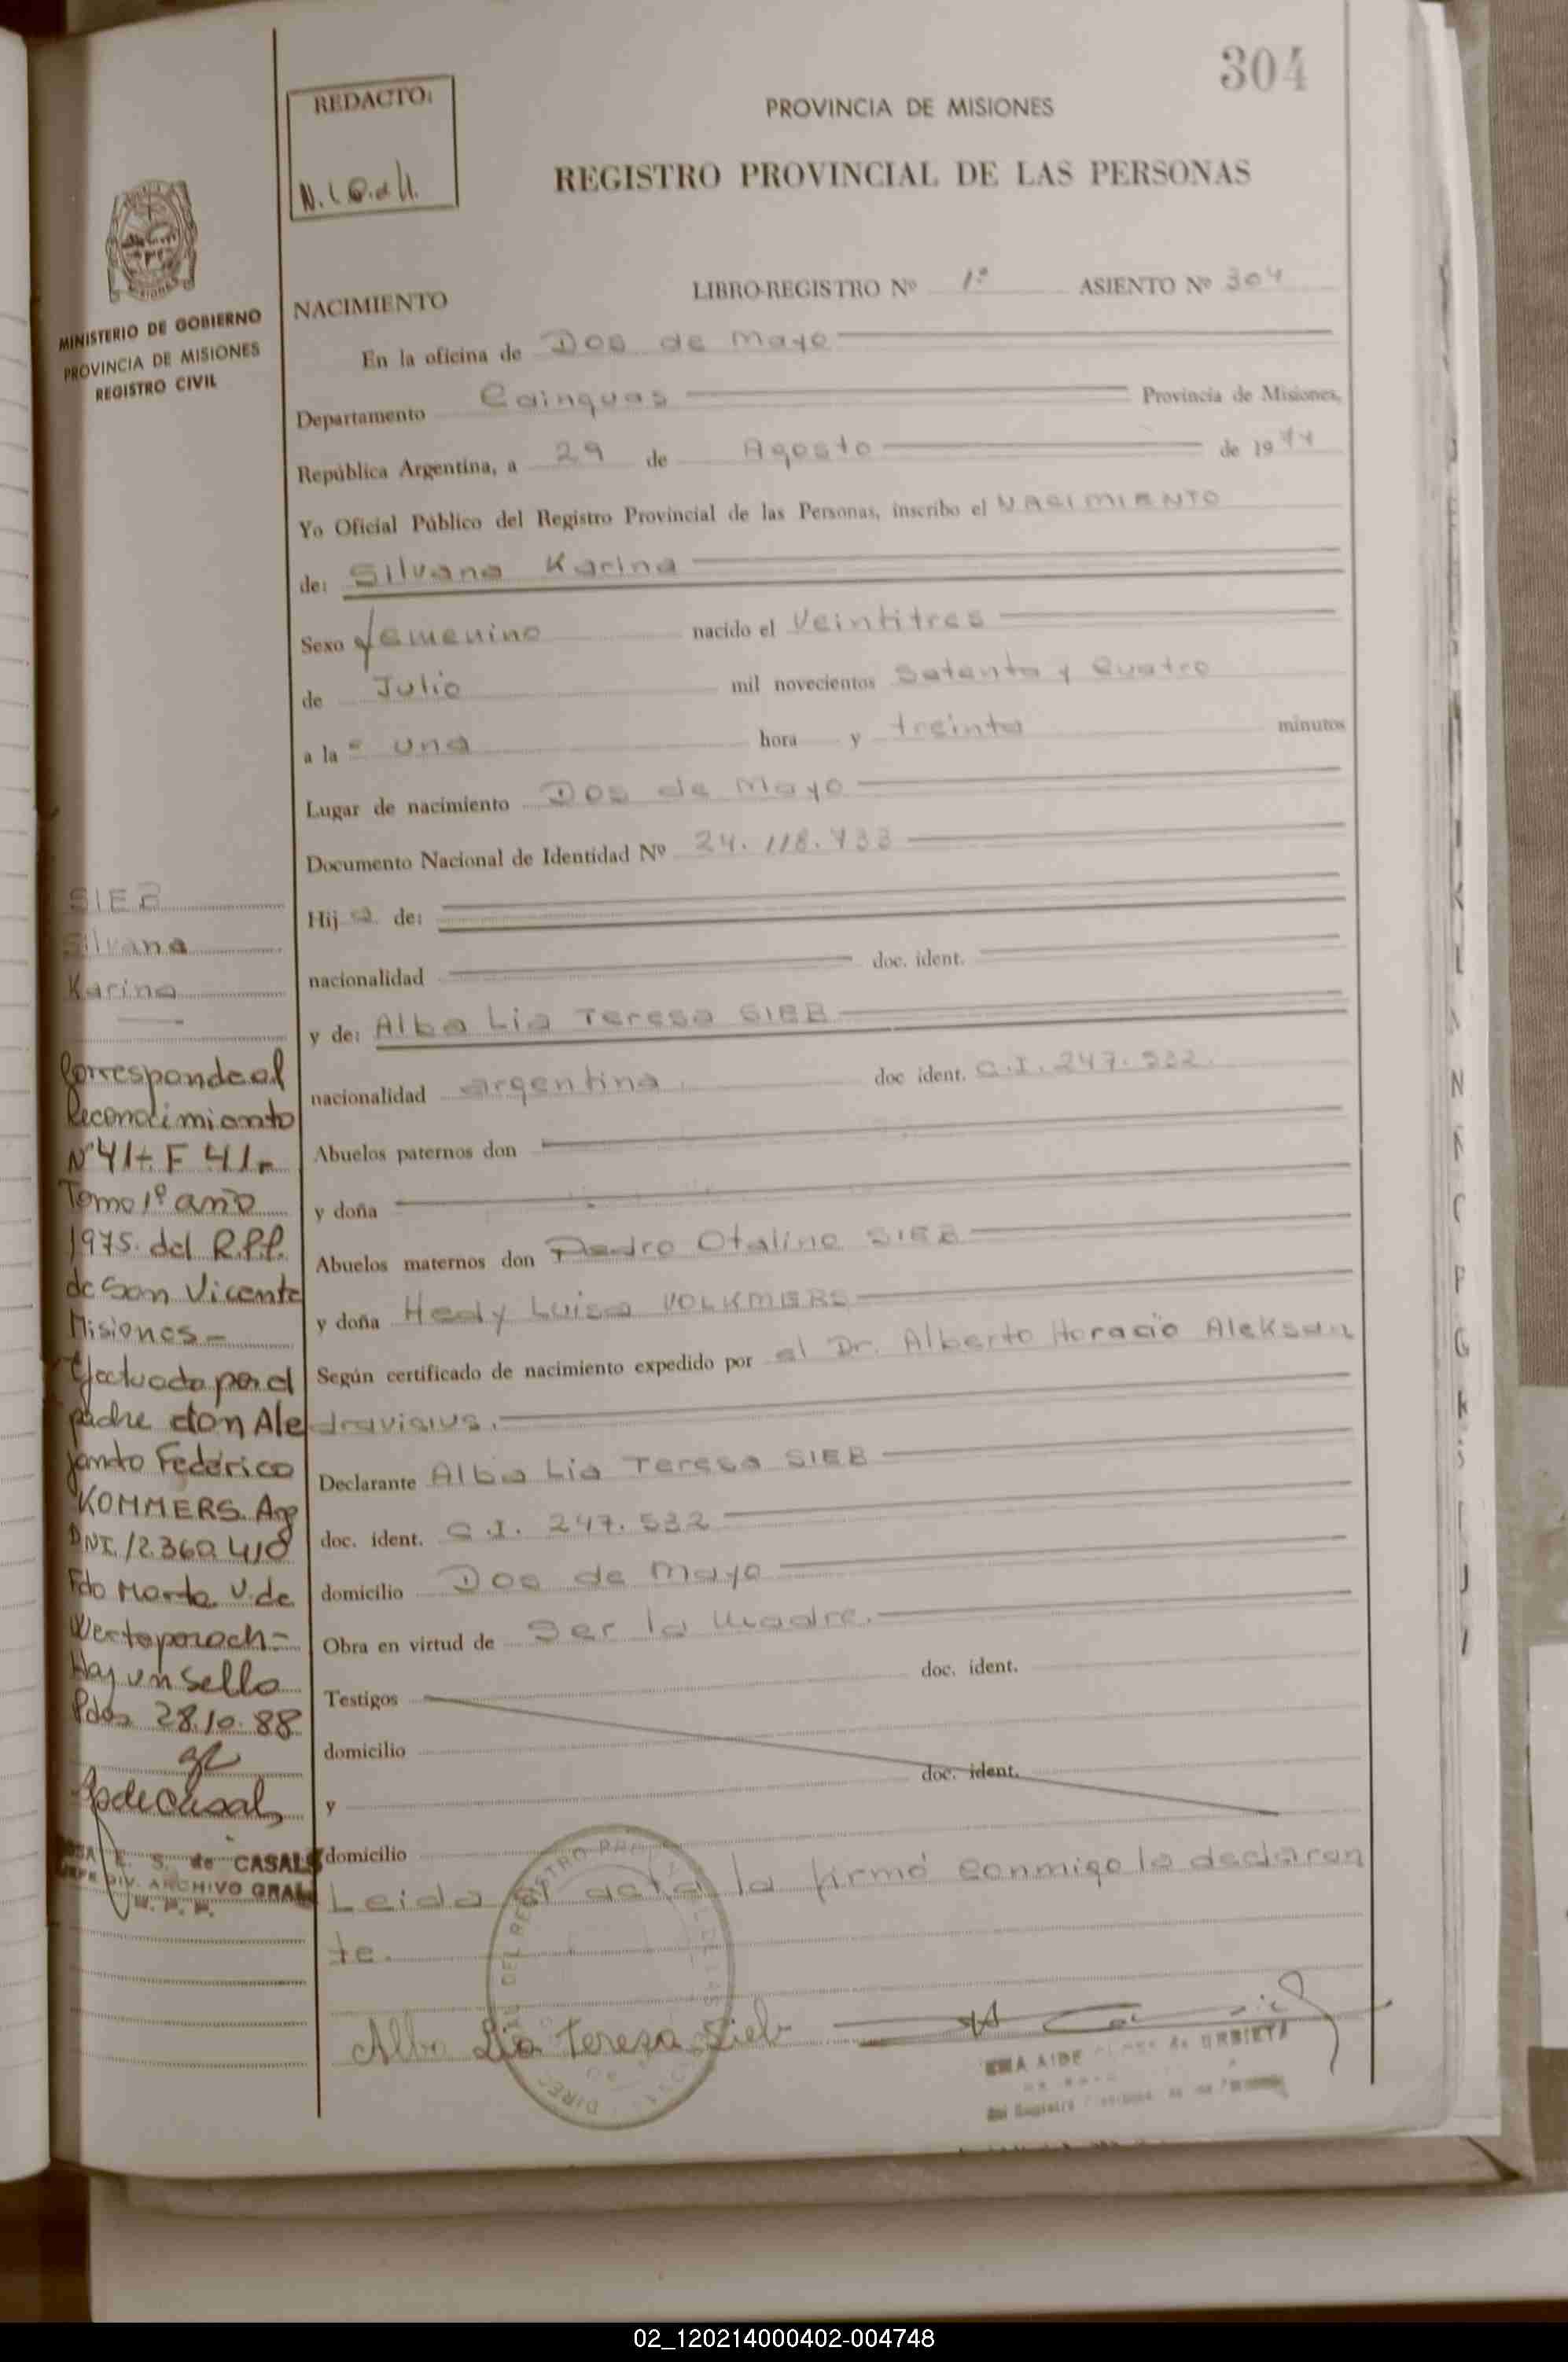 304
REDACTO:
PROVINCIA DE MISIONES
REGISTRO PROVINCIAL DE LAS PERSONAS
MINISTERIO DE GOBIERNO
PROVINCIA DE MISIONES
REGISTRO CIVIL
NACIMIENTO LIBRO-REGISTRO Nº 1º ASIENTO Nº 304
En la oficina de Dos de Mayo
Departamento Cainguas Provincia de Misiones,
República Argentina, a 29 de Agosto de 1974
Yo Oficial Público del Registro Provincial de las Personas, inscribo el NACIMIENTO
de: Silvana Karina
Sexo femenino nacido el Veintitres
de Julio mil novecientos Setenta y Cuatro
a la s una hora y treinta minutos
Lugar de nacimiento Dos de Mayo
Documento Nacional de Identidad Nº 24.118.733
Hij a de:
nacionalidad doc. ident.
y de: Alba Lia Teresa SIEB
nacionalidad argentina. doc ident. C.I. 247.532.
Abuelos paternos don
y doña
Abuelos maternos don Pedro Otalino SIEB
y doña Hedy Luisa VOLKMERS
Según certificado de nacimiento expedido por el Dr. Alberto Horacio Aleksan
dravisius.
Declarante Alba Lia Teresa SIEB
doc. ident. C.I. 247.532
domicilio Dos de Mayo
Obra en virtud de Ser la madre.
doc. ident.
Testigos
domicilio
doc. ident.
y
domicilio
Leida el acta la firmó conmigo la declaran
te.
Alba Lia Teresa Sieb
SIEB
Silvana
Karina
Corresponde al
Reconocimiento
Nº 41 F 41
Tomo 1º año
1975 del R.P.P.
de San Vicente
Misiones-
Efectuado por el
padre don Ale
jandro Federico
KOMMERS. Arg
DNI. 12.360.410
Fdo Marta V. de
Hay un sello
Pdas 28.10.88
E. S. de CASALS
JEFE DIV. ARCHIVO GRAL
02_120214000402-004748